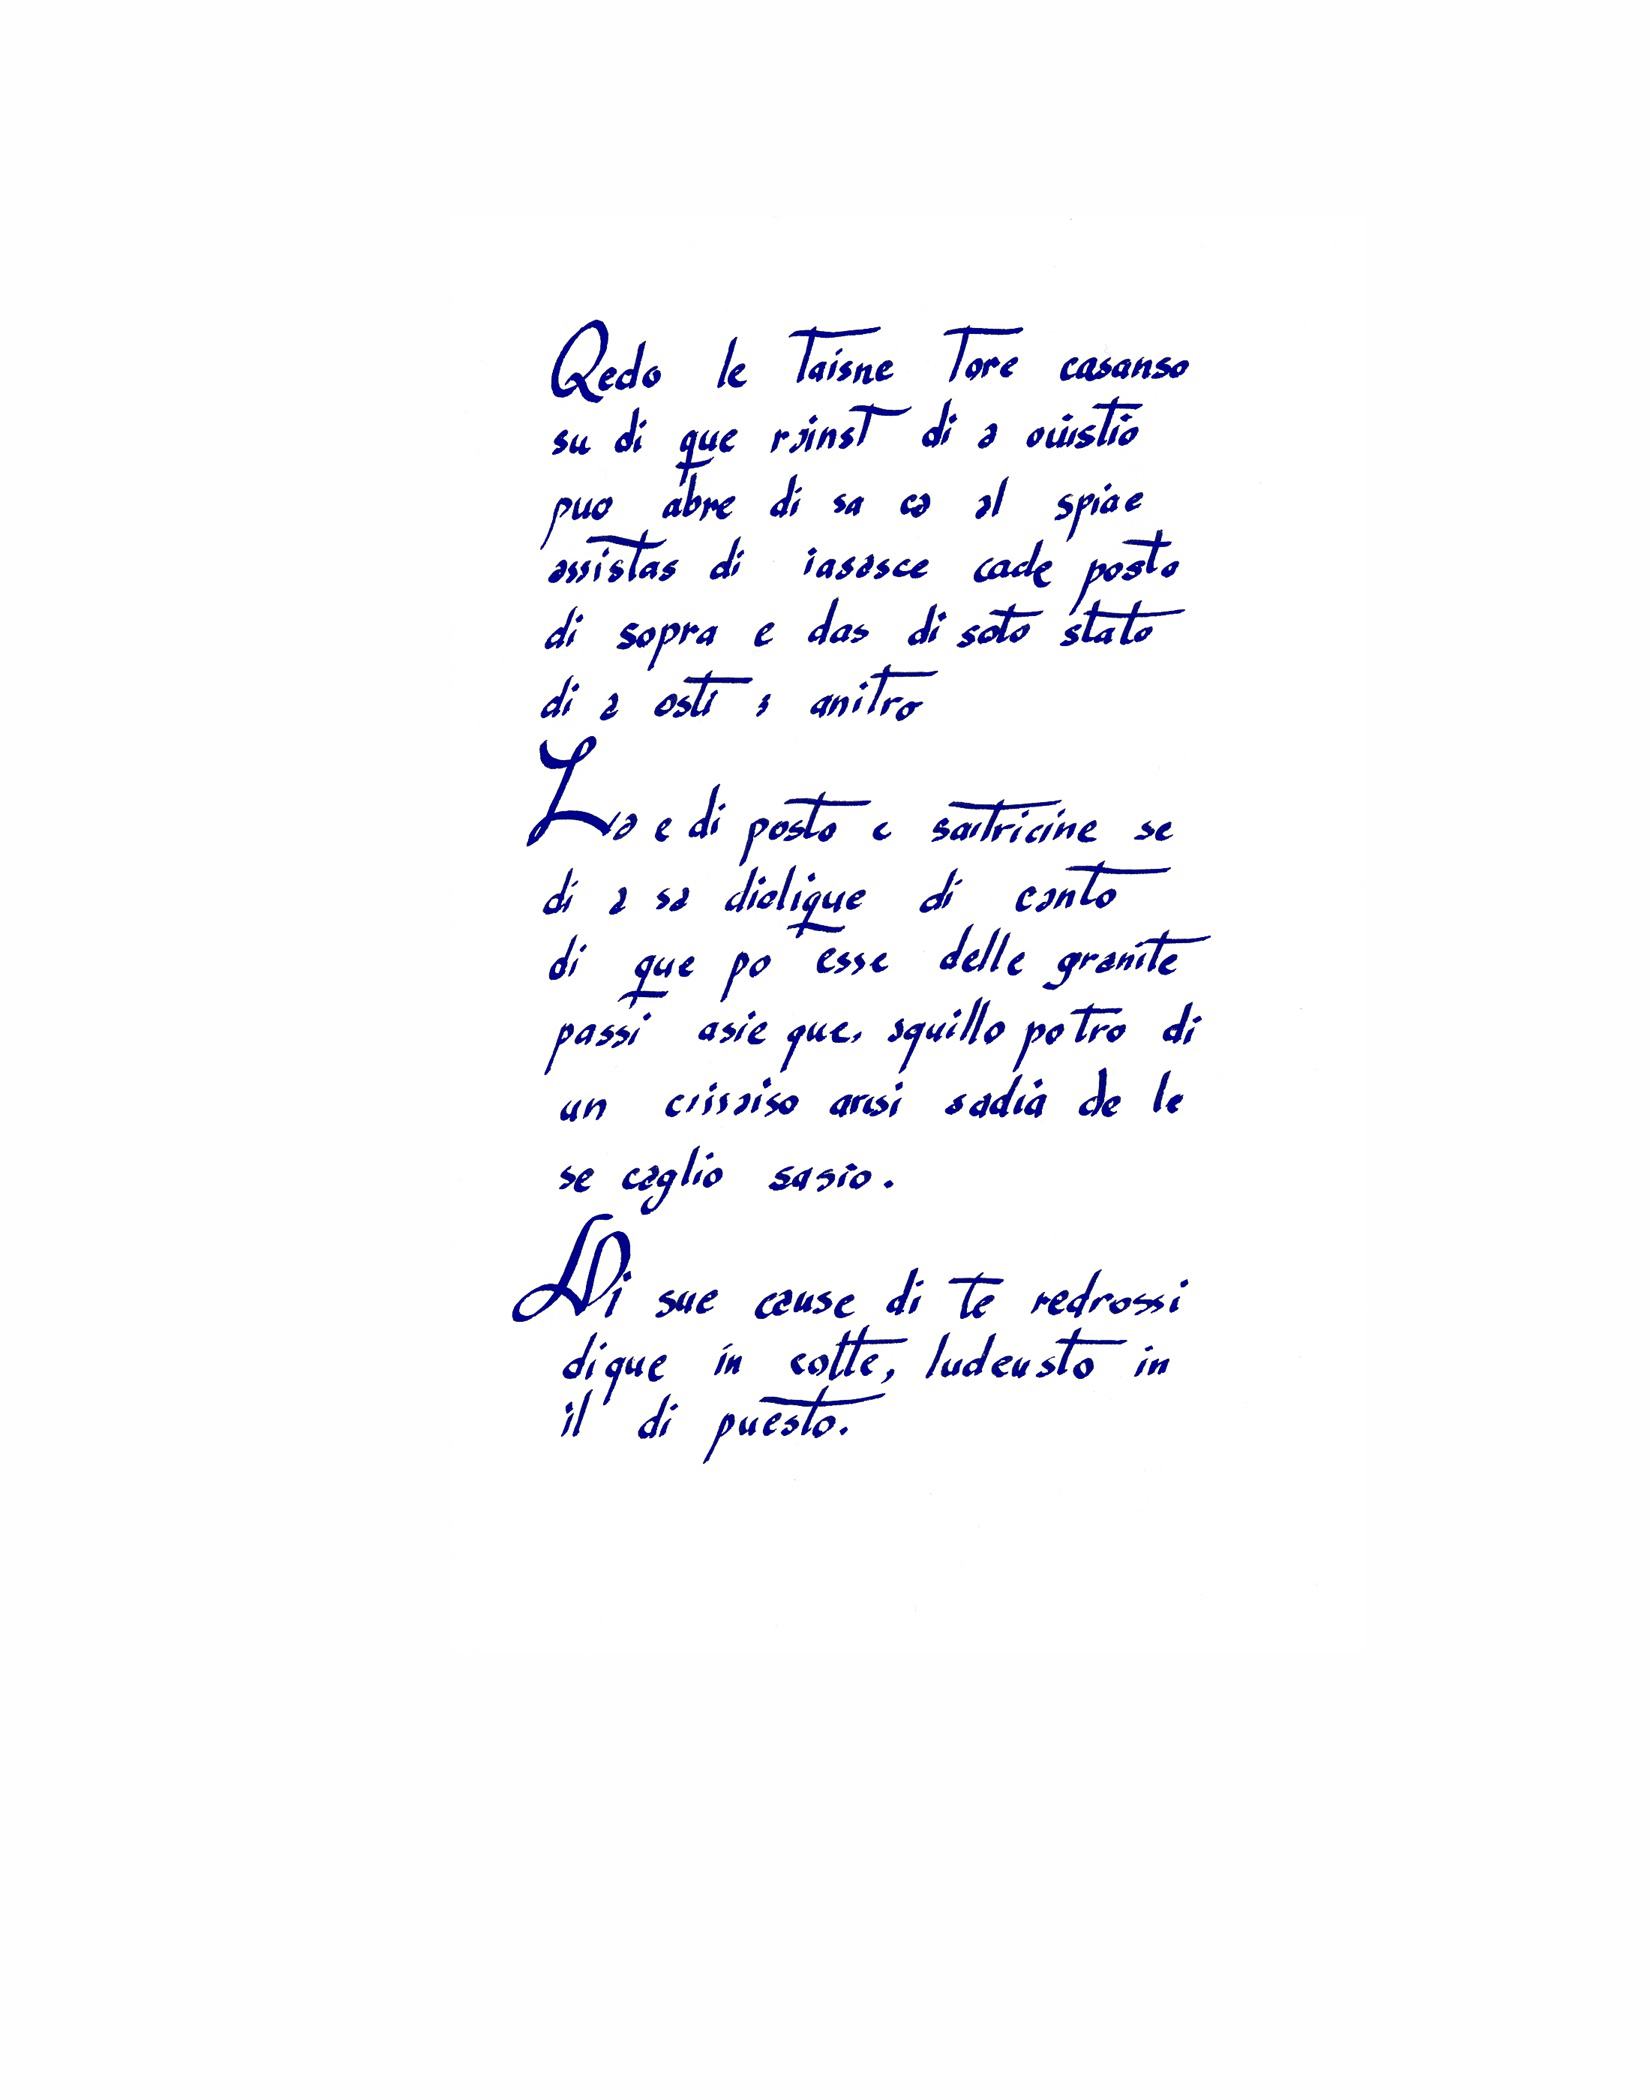 Qedo le Taisne Tore casanso
su di que di a
puo abre di sa ca al spiae
assistas di iasasce cade posto
di sopra e das di soto stato
di a osti s anitro
La e di posto e se
di a sa dialique di canto
di que po esse delle granite
passi asie que, squillo potro di
un sadia de le
se caglio sasio.
Di sue cause di te redrossi
dique in cotte, ludeusto in
il di puesto.